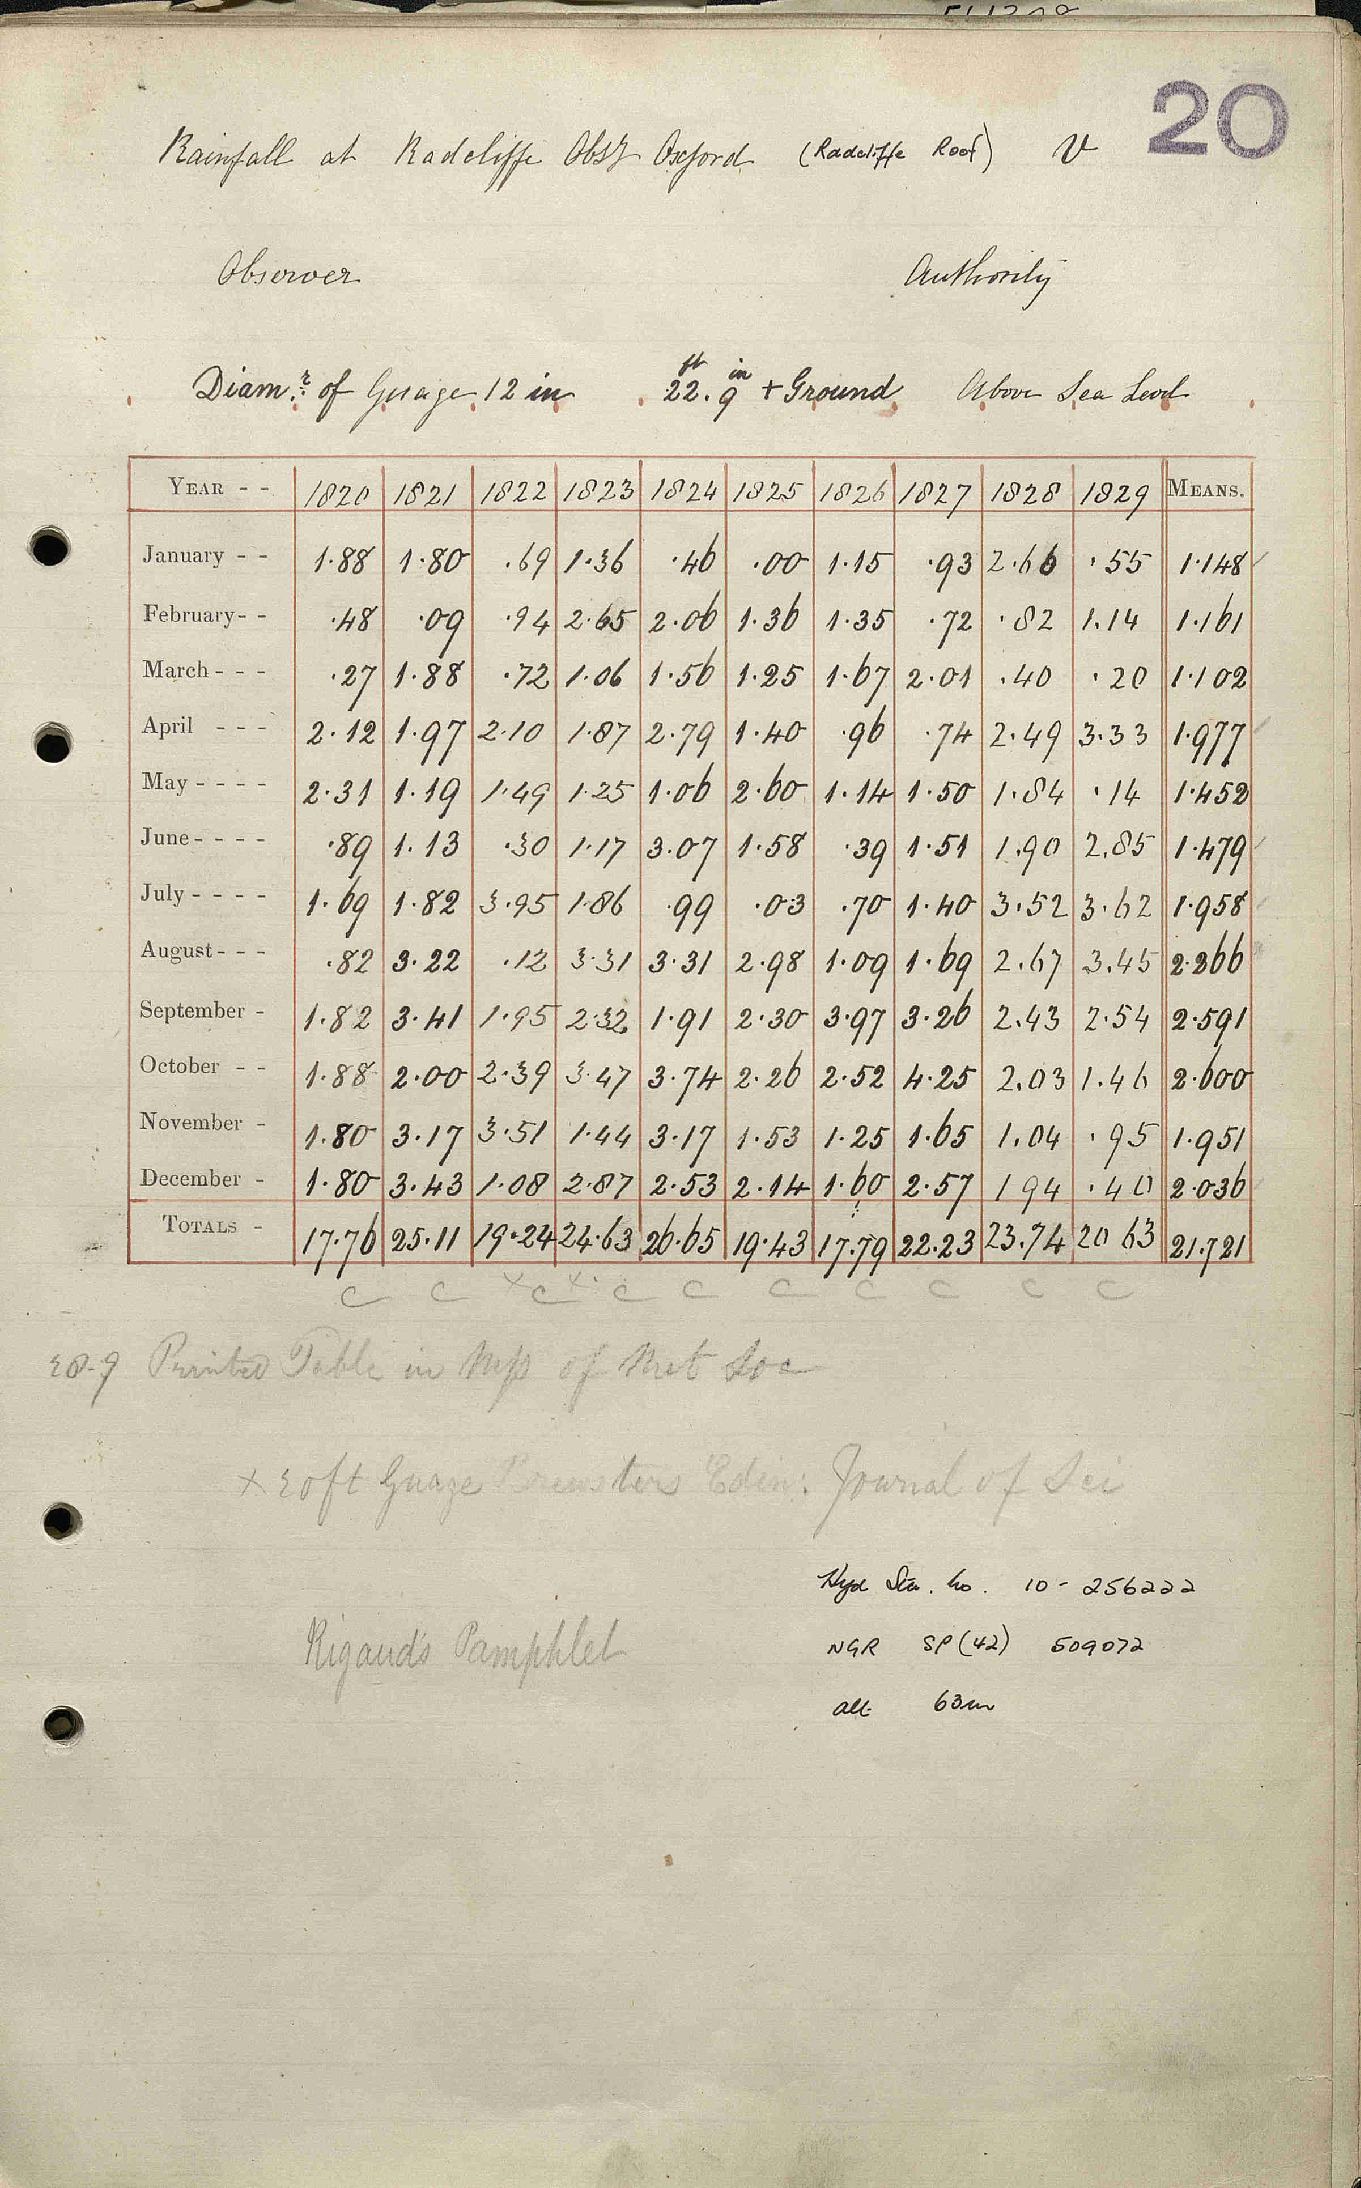 20
Rainfall at Radcliffe Obsy Oxford (Radcliffe Roof) V
Observer Authority
Diamr. of Guage 12 in 22.ft 9in + Ground Above Sea Level
YEAR - - 1820 1821 1822 1823 1824 1825 1826 1827 1828 1829 MEANS.
January - - 1.88 1.80 .69 1.36 .46 .00 1.15 .93 2.66 .55 1.148
February- - .48 .09 .94 2.65 2.06 1.36 1.35 .72 .82 1.14 1.161
March - - - .27 1.88 .72 1.06 1.56 1.25 1.67 2.01 .40 .20 1.102
April - - - 2.12 1.97 2.10 1.87 2.79 1.40 .96 .74 2.49 3.33 1.977
May - - - - 2.31 1.19 1.49 1.25 1.06 2.60 1.14 1.50 1.84 .14 1.452
June - - - - .89 1.13 .30 1.17 3.07 1.58 .39 1.51 1.90 2.85 1.479
July - - - - 1.69 1.82 3.95 1.86 .99 .03 .70 1.40 3.52 3.62 1.958
August - - - .82 3.22 .12 3.31 3.31 2.98 1.09 1.69 2.67 3.45 2.266
September - 1.82 3.41 1.95 2.32 1.91 2.30 3.97 3.26 2.43 2.54 2.591
October - - 1.88 2.00 2.39 3.47 3.74 2.26 2.52 4.25 2.03 1.46 2.600
November - 1.80 3.17 3.51 1.44 3.17 1.53 1.25 1.65 1.04 .95 1.951
December - 1.80 3.43 1.08 2.87 2.53 2.14 1.60 2.57 1 94 .40 2.036
TOTALS - 17.76 25.11 19.24 24.63 26.65 19.43 17.79 22.23 23.74 20 63 21.721
C C x C x C C C C C C C
28-9 Printed Table in Mss of Met Soc
x 20ft Guage Brewsters Edin: Journal of Sci
Hyd Sta. no. 10 - 256222
Rigaud's Pamphlet
NGR SP (42) 509072
alt 63m